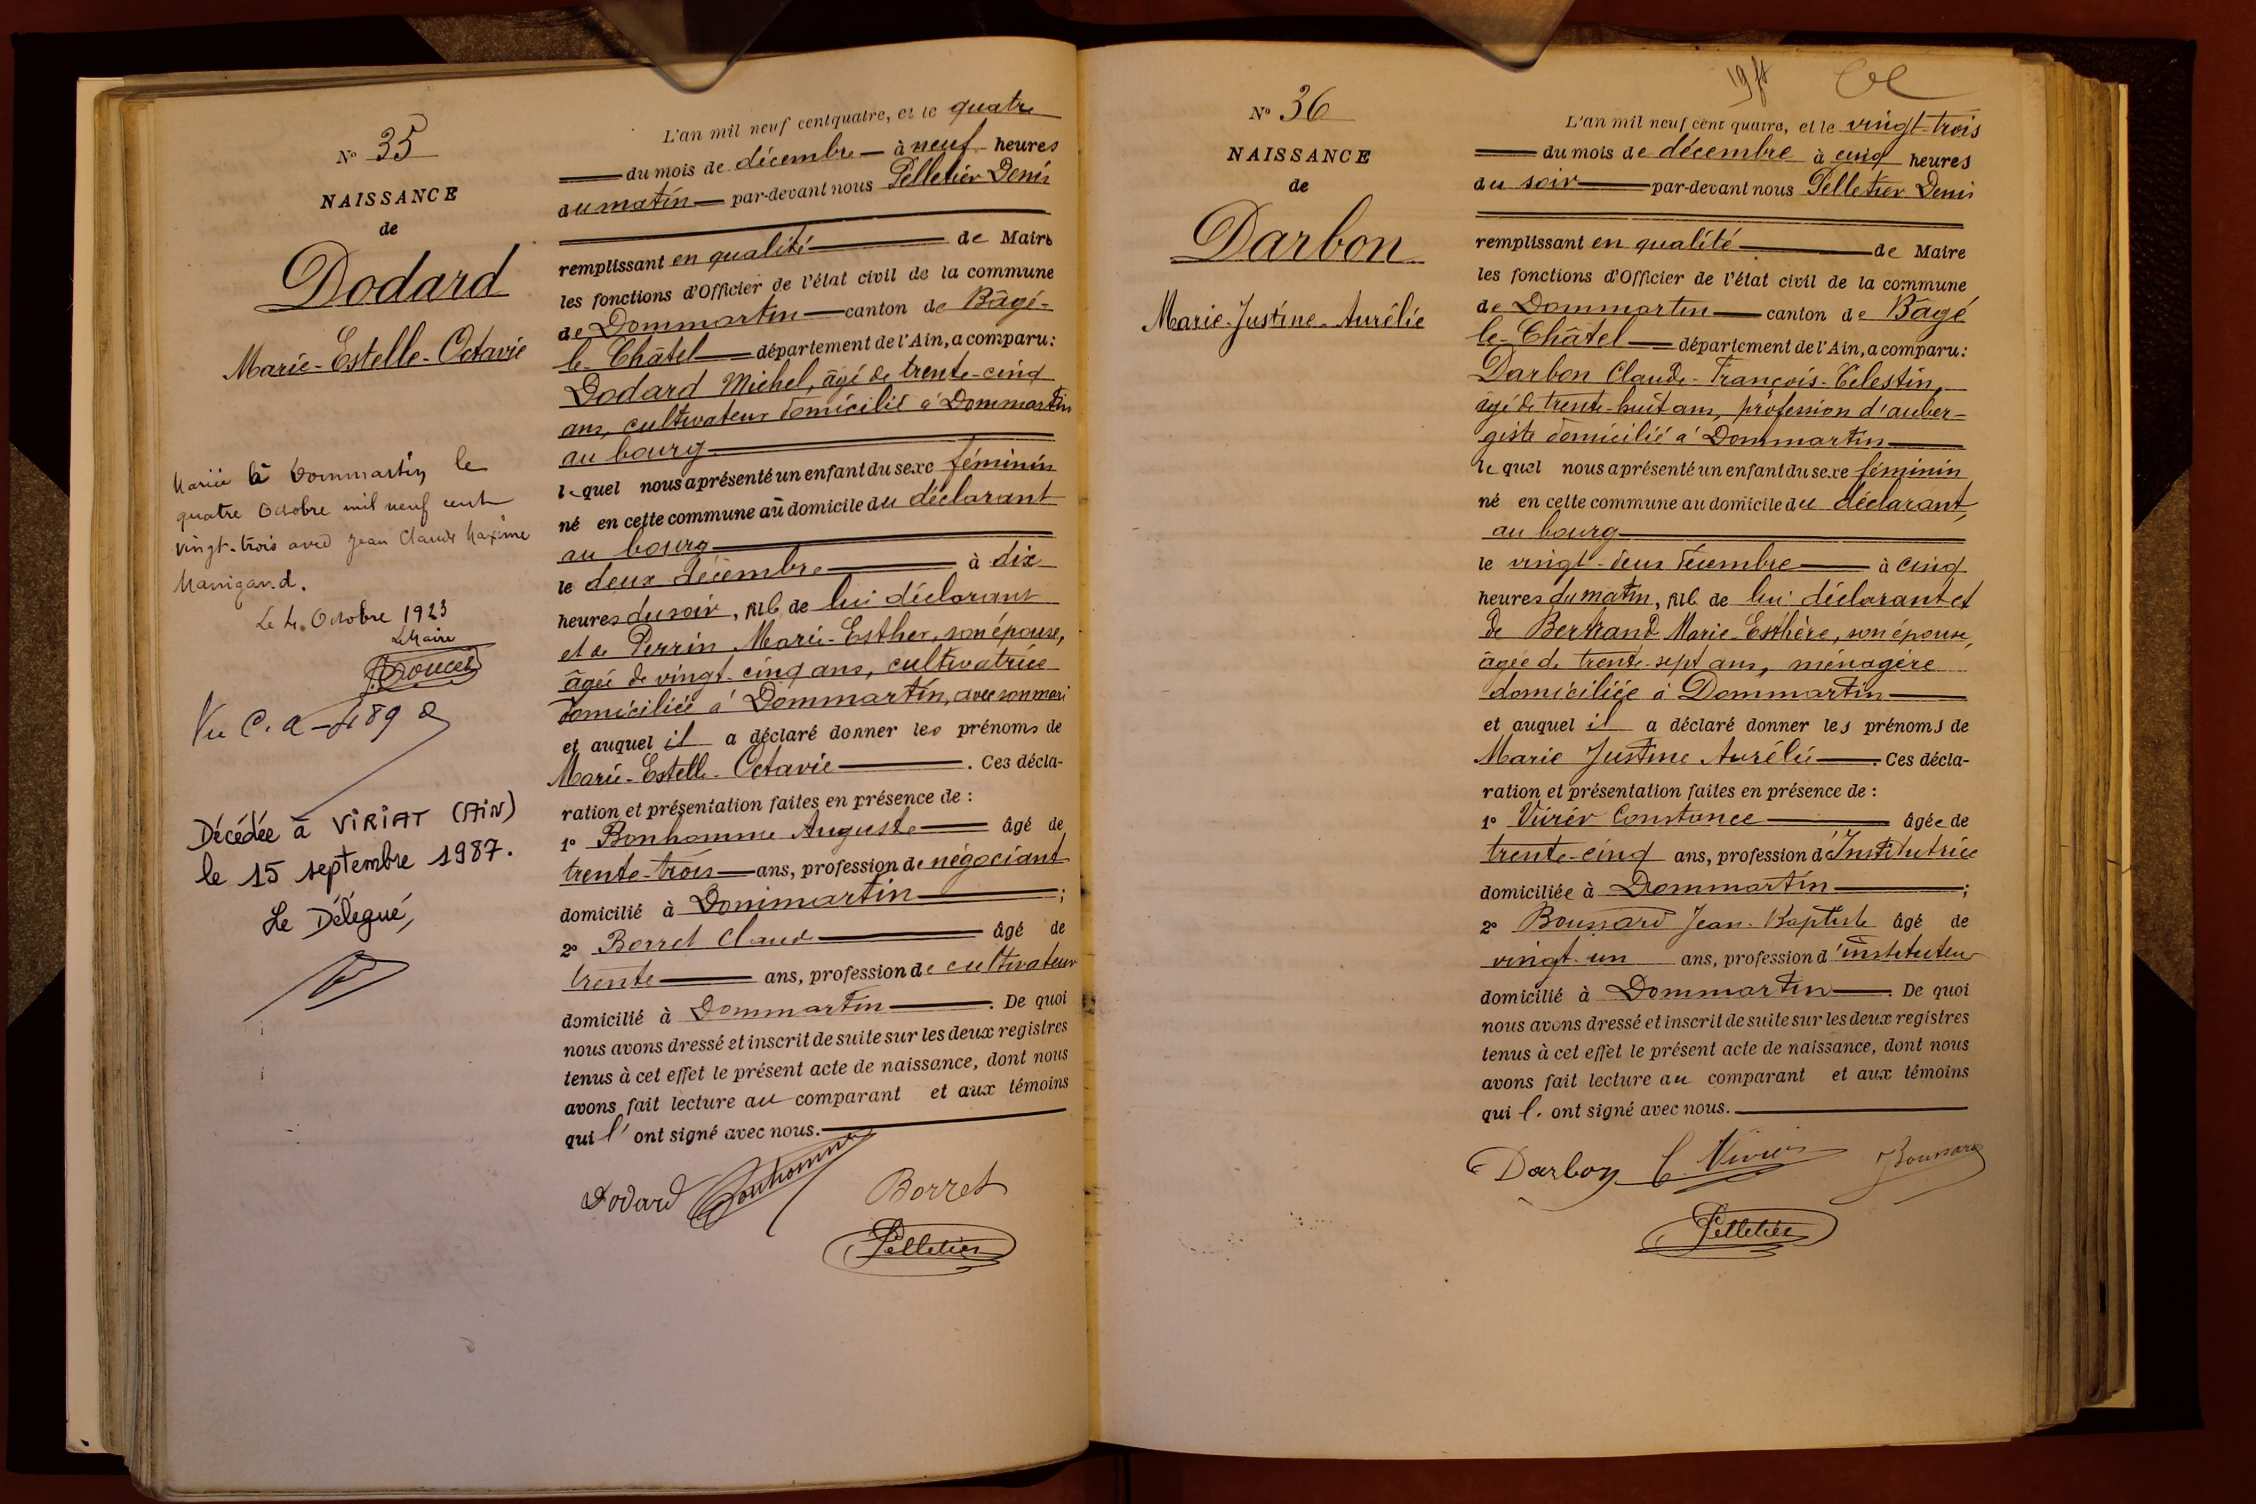 N° 35
NAISSANCE
de
Dodard
Marie-Estelle-Octavie
Mariée à Dommartin le
quatre Octobre mil neuf cent
vingt-trois avec Jean Claude Maxime
Manigand.
Le 4 Octobre 1923
Le Maire
Vu C.
Décédée à VIRIAT (AIN)
le 15 septembre 1987.
Le Délégué,
L'an mil neuf cent quatre, et le quatre
du mois de décembre à neuf heures
du matin par-devant nous Pelletier Denis
remplissant en qualité de Maire
les fonctions d'Officier de l'état civil de la commune
de Dommartin canton de Bâgé-
le-Châtel département de l'Ain, a comparu:
Dodard Michel, âgé de trente-cinq
ans, cultivateur domicilié à Dommartin
au bourg
lequel nous a présenté un enfant du sexe féminin
né en cette commune au domicile du déclarant
au bourg
le deux décembre à dix
heures du soir, fille de lui déclarant
et de Perrin Marie-Esther, son épouse,
âgée de vingt-cinq ans, cultivatrice
domiciliée à Dommartin, avec son mari
et auquel il a déclaré donner les prénoms de
Marie-Estelle-Octavie. Ces décla-
ration et présentation faites en présence de :
1° Bonhomme Auguste âgé de
trente-trois ans, profession de négociant
domicilié à Dommartin ;
2° Borret Claude âgé de
trente ans, profession de cultivateur
domicilié à Dommartin. De quoi
nous avons dressé et inscrit de suite sur les deux registres
tenus à cet effet le présent acte de naissance, dont nous
avons fait lecture au comparant et aux témoins
qui l'ont signé avec nous.
Dodard Bonhomme Borret
Pelletier
N° 36
NAISSANCE
de
Darbon
Marie-Justine-Aurélie
L'an mil neuf cent quatre, et le vingt-trois
du mois de décembre à cinq heures
du soir par-devant nous Pelletier Denis
remplissant en qualité de Maire
les fonctions d'Officier de l'état civil de la commune
de Dommartin canton de Bâgé
le-Châtel département de l'Ain, a comparu:
Darbon Claude-François-Célestin,
âgé de trente-huit ans, profession d'auber-
giste domicilié à Dommartin
lequel nous a présenté un enfant du sexe féminin
né en cette commune au domicile du déclarant,
au bourg
le vingt-deux décembre à cinq
heures du matin, fille de lui déclarant et
de Bertrand Marie-Esthère, son épouse,
âgée de trente-sept ans, ménagère
domiciliée à Dommartin
et auquel il a déclaré donner les prénoms de
Marie Justine Aurélie. Ces décla-
ration et présentation faites en présence de :
1° Vivier Constance âgée de
trente-cinq ans, profession d'Institutrice
domiciliée à Dommartin ;
2° Boussard Jean-Baptiste âgé de
vingt-un ans, profession d'instituteur
domicilié à Dommartin. De quoi
nous avons dressé et inscrit de suite sur les deux registres
tenus à cet effet le présent acte de naissance, dont nous
avons fait lecture au comparant et aux témoins
qui l'ont signé avec nous.
Darbon C. Vivier Boussard
Pelletier